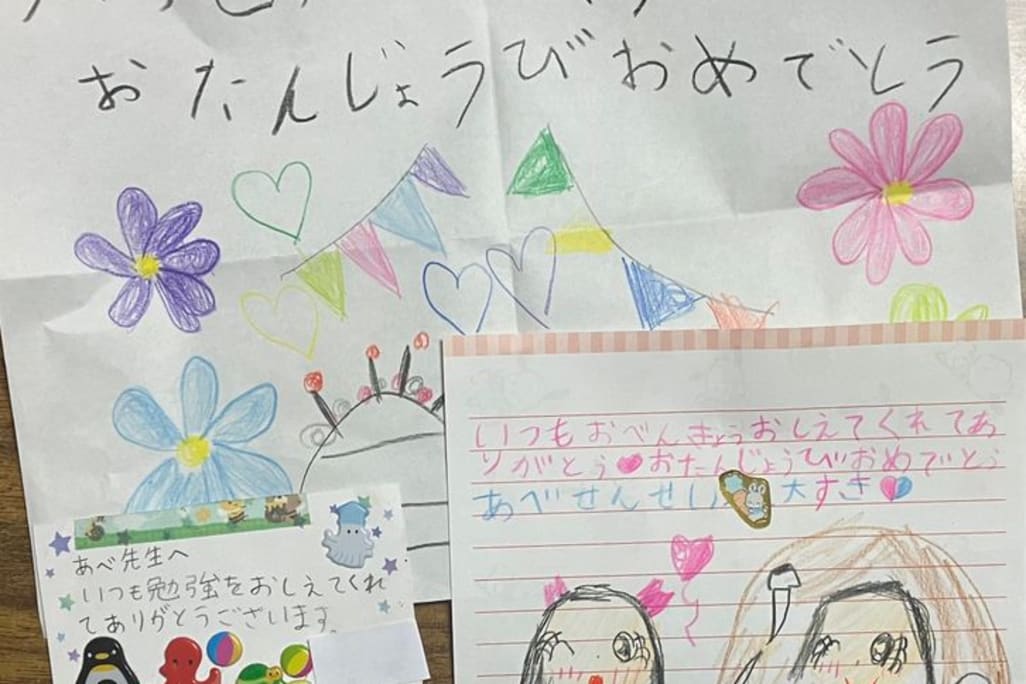 おたんじょうびおめでとう
いつもおべんきょうおしえてくれてあ
りがとう おたんじょうびおめでとう
あべせんせい 大すき
あべ先生へ
いつも勉強をおしえてくれ
てありがとうございます。